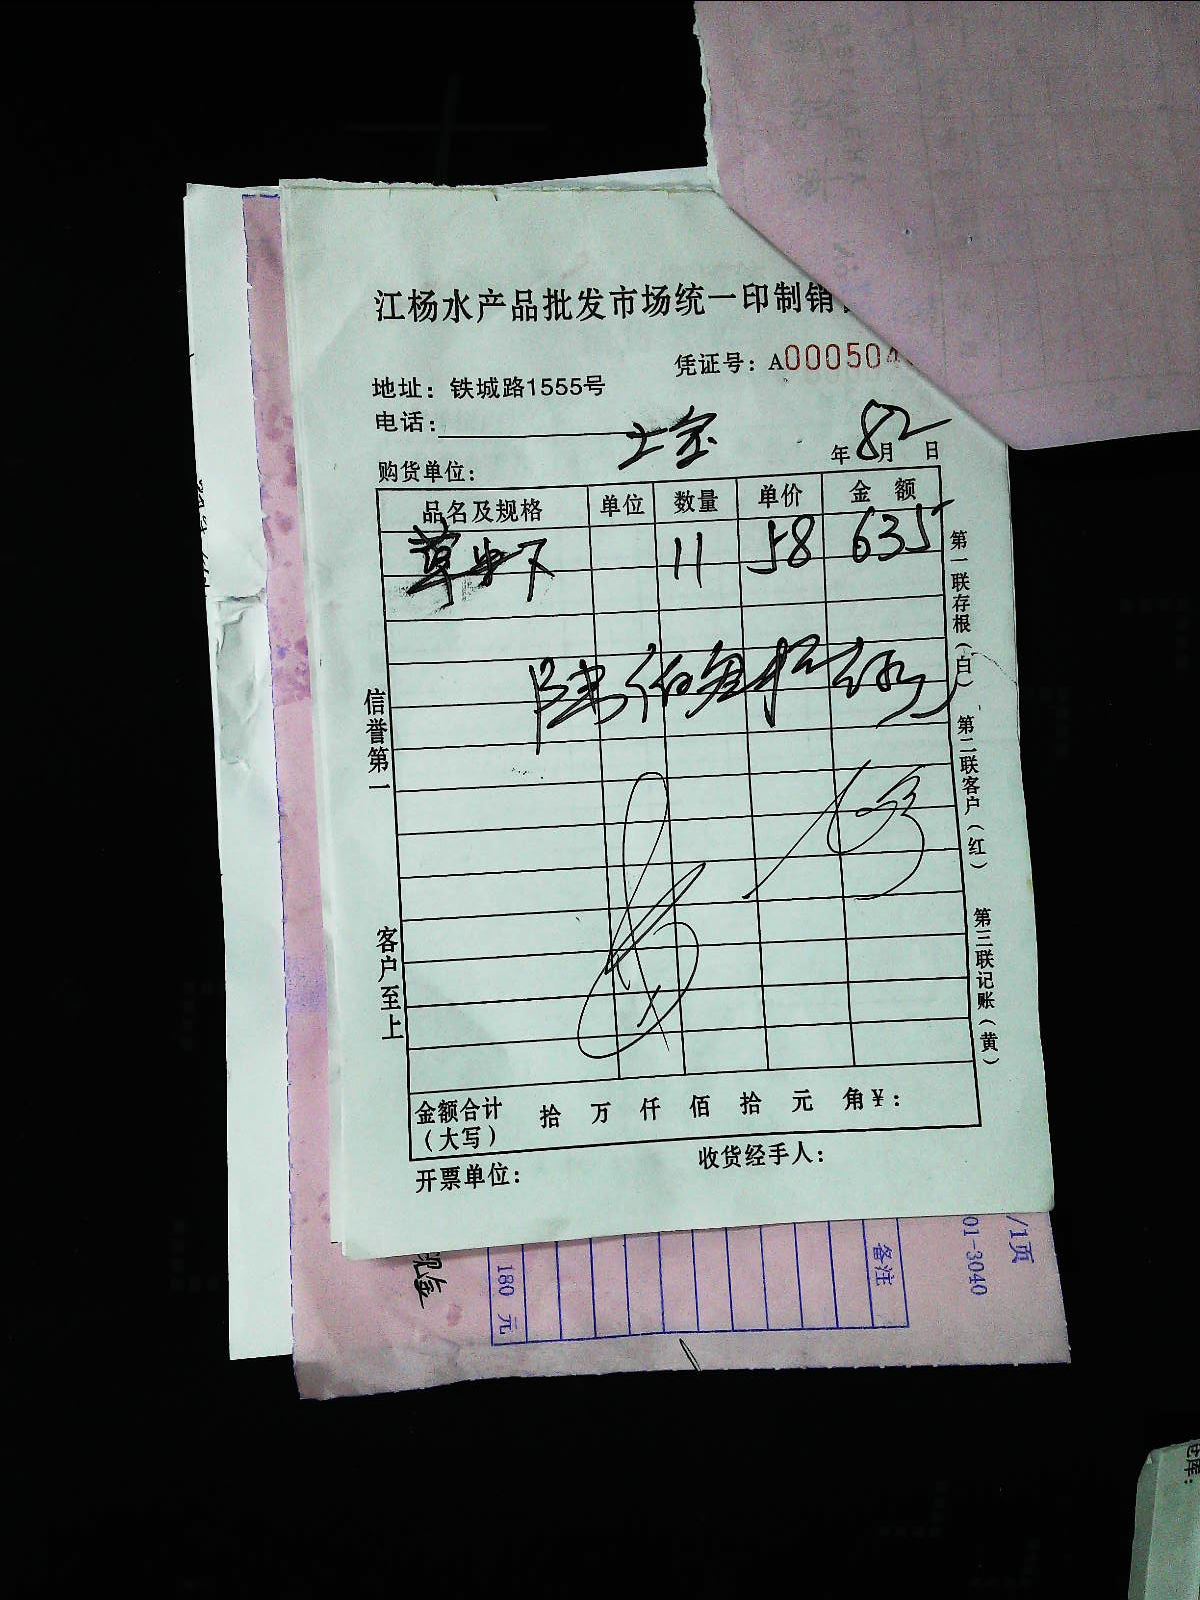 江杨水产品批发市场统一印制销
凭证号：A000504
地址：铁城路1555号
电话：
购货单位： 上宝 年8月2日
品名及规格 单位 数量 单价 金额
草虾 11 58 635
信誉第一
客户至上
第一联存根（白）
第二联客户（红）
第三联记账（黄）
金额合计（大写） 拾 万 仟 佰 拾 元 角¥：
开票单位： 收货经手人：
现金
180 元
备注
/1页
01-3040